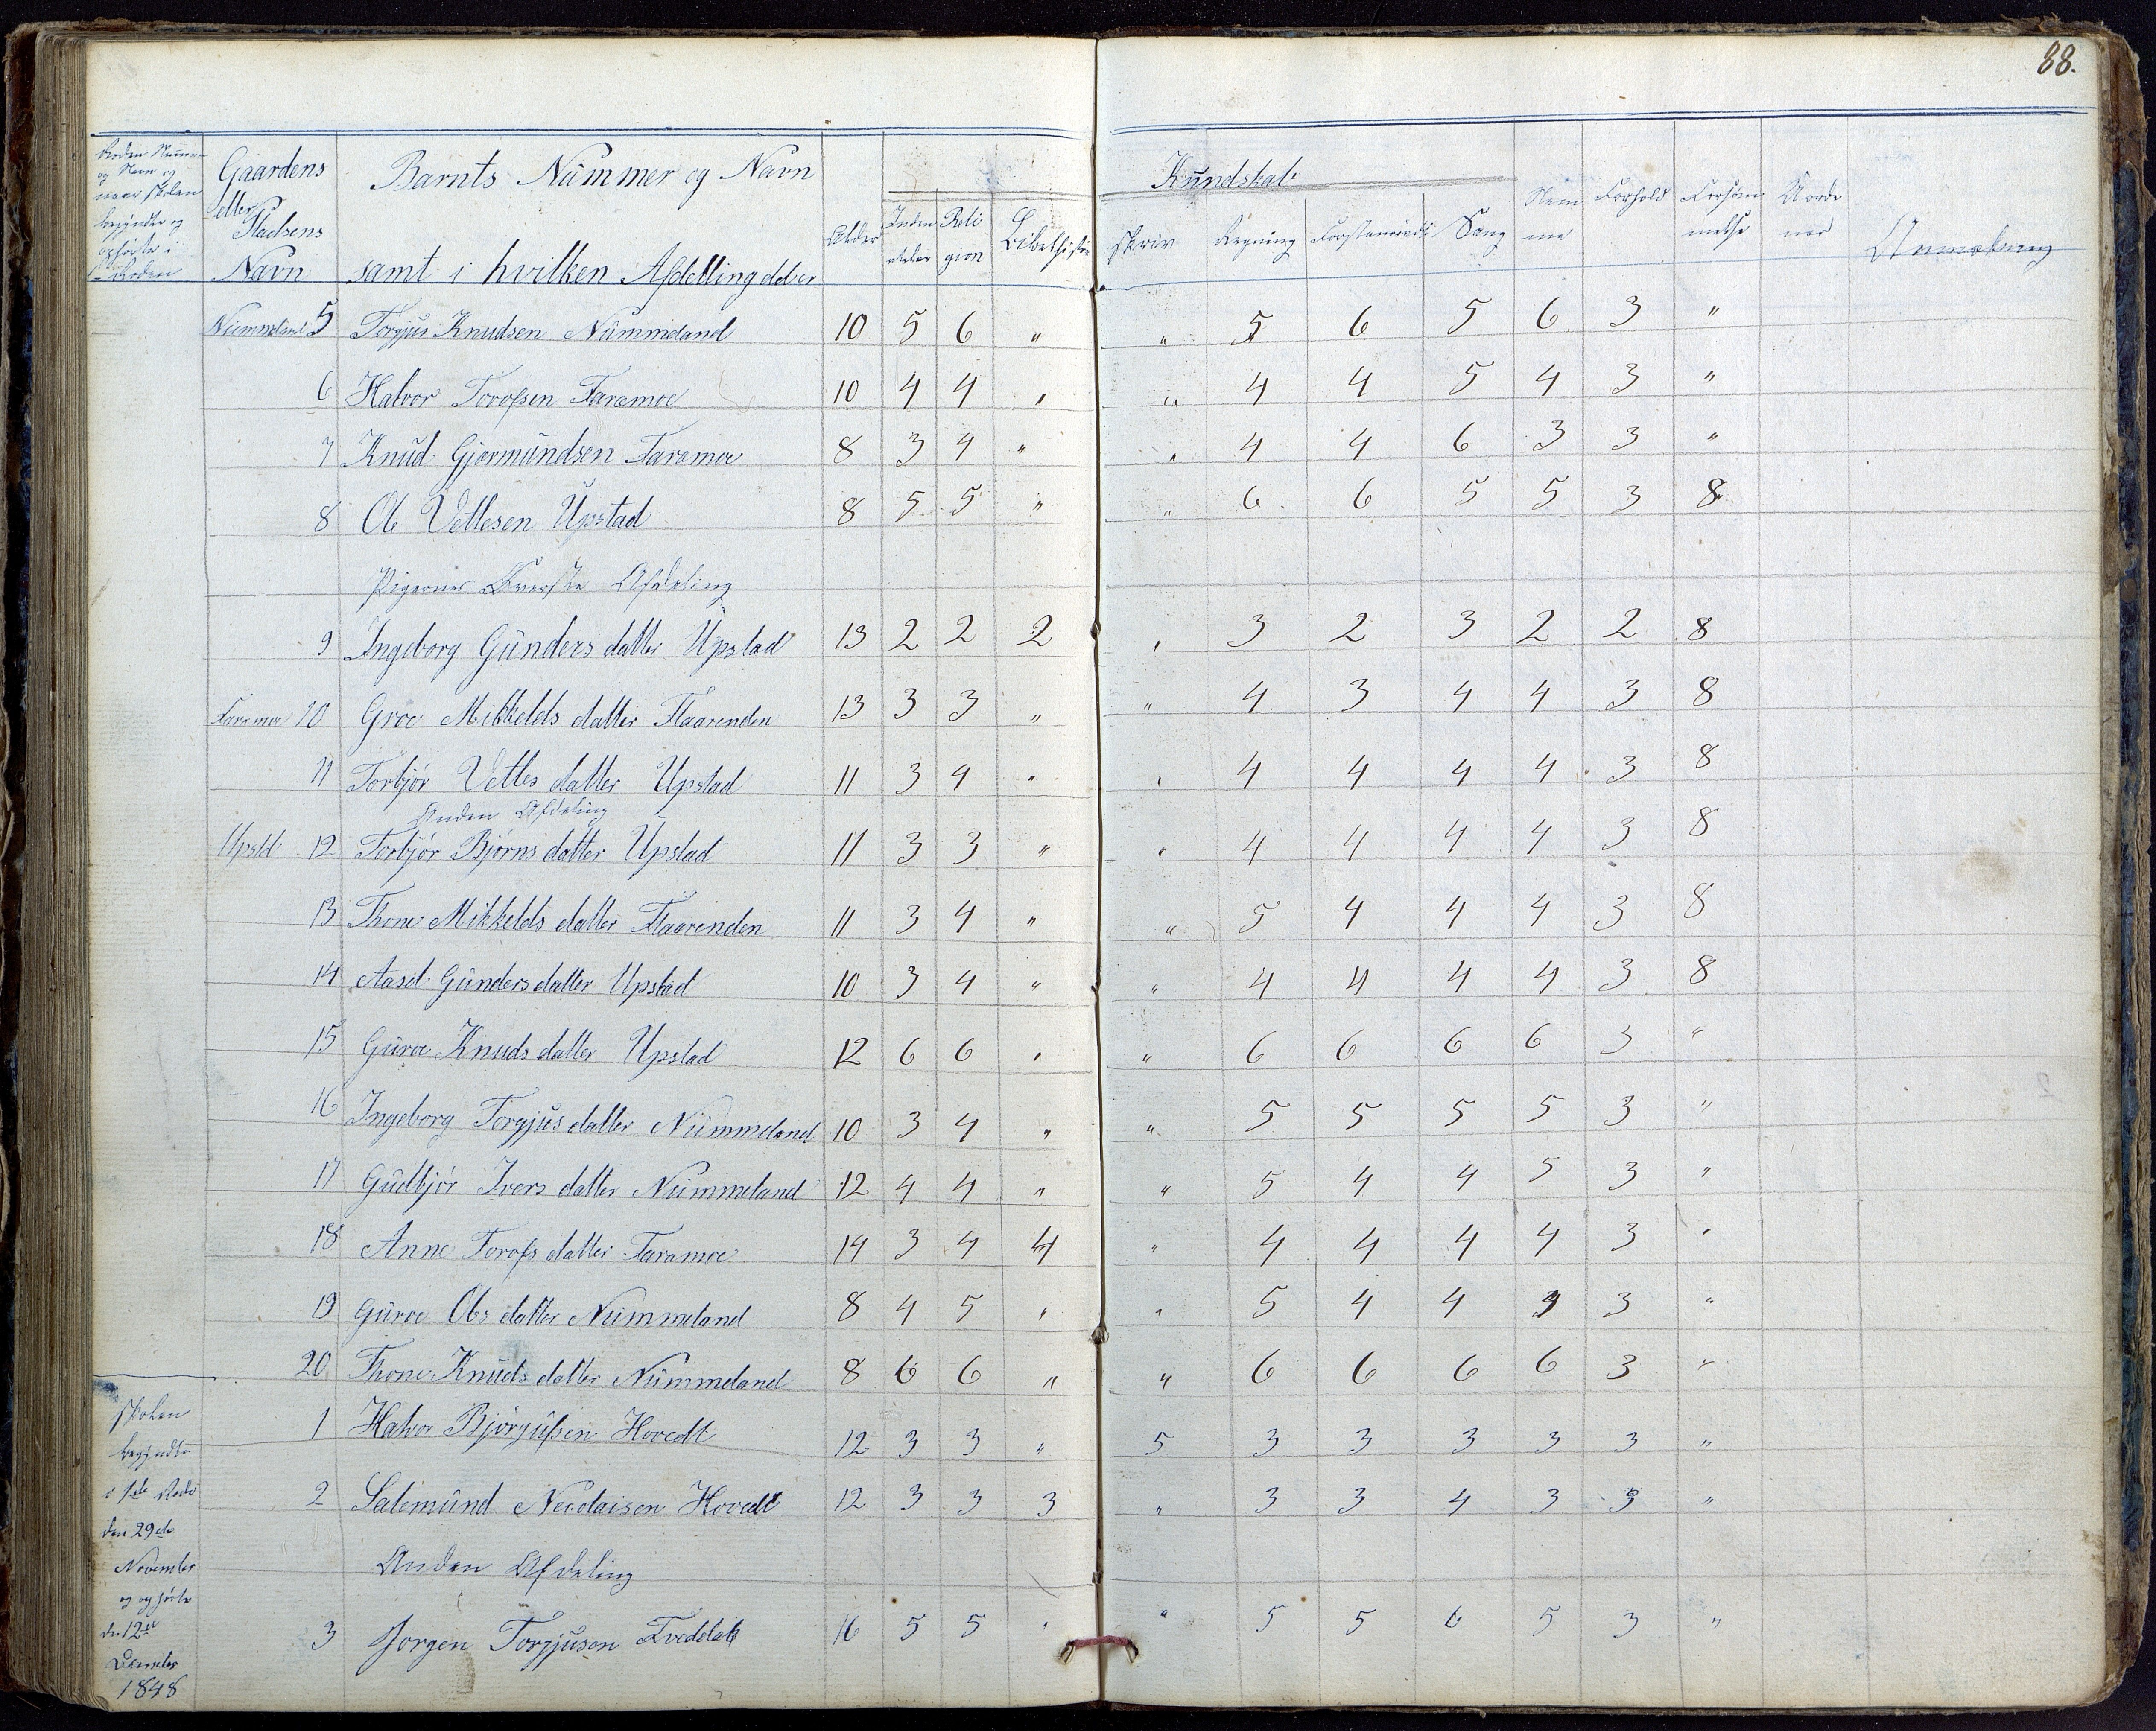 88.
Gaardens eller Pladsens Navn
Barnts Nummer og Navn samt i hvilken Afdelling det er
Alder
Religion
Bibelhistorie
Kundskab
Skriv
Regning
Forstandsøv
Sang
Nemme
Forhold
Forsømmelse
Anmerkning
Nummeland 5 Torgjus Knudsen Nummeland 10 5 6 " " 5 6 5 6 3 "
6 Halvor Torofsen Faramoe 10 4 4 " " 4 4 5 4 3 "
7 Knud Gjermundsen Faramoe 8 3 4 " " 4 4 6 3 3 "
8 Ole Vettesen Upstad 8 5 5 " " 6 6 5 5 3 8
Pigernes Øverste Afdeling
9 Ingeborg Gunders datter Upstad 13 2 2 2 " 3 2 3 2 2 8
Faramoe 10 Groe Mikkelds datter Flaarenden 13 3 3 " " 4 3 4 4 3 8
11 Torbjør Vettes datter Upstad 11 3 4 " " 4 4 4 4 3 8
Anden Afdeling
Upstd 12 Torbjør Bjørns datter Upstad 11 3 3 " " 4 4 4 4 3 8
13 Thone Mikkelds datter Flaarenden 11 3 4 " " 5 4 4 4 3 8
14 Aasel Gunders datter Upstad 10 3 4 " " 4 4 4 4 3 8
15 Guroe Knuds datter Upstad 12 6 6 " " 6 6 6 6 3 "
16 Ingeborg Torgjus datter Nummeland 10 3 4 " " 5 5 5 5 3 "
17 Gudbjør Ivers datter Nummeland 12 4 4 " " 5 4 4 5 3 "
18 Anne Torofs datter Faramoe 14 3 4 4 " 4 4 4 4 3 "
19 Guroe Ols datter Nummeland 8 4 5 " " 5 4 4 4 3 "
20 Thone Knuds datter Nummeland 8 6 6 " " 6 6 6 6 3 "
1 Halvor Bjørgufsen Hovedt 12 3 3 " 5 3 3 3 3 3 "
2 Salemund Nicolaisen Hovedt 12 3 3 3 " 3 3 4 3 3 "
Anden Afdeling
3 Jorgen Torgjusen 16 5 5 " " 5 5 6 5 3 "
Skolen
begyndte
i 1ste Rode
den 29de
November
og ophørte
den 12te
December
1848